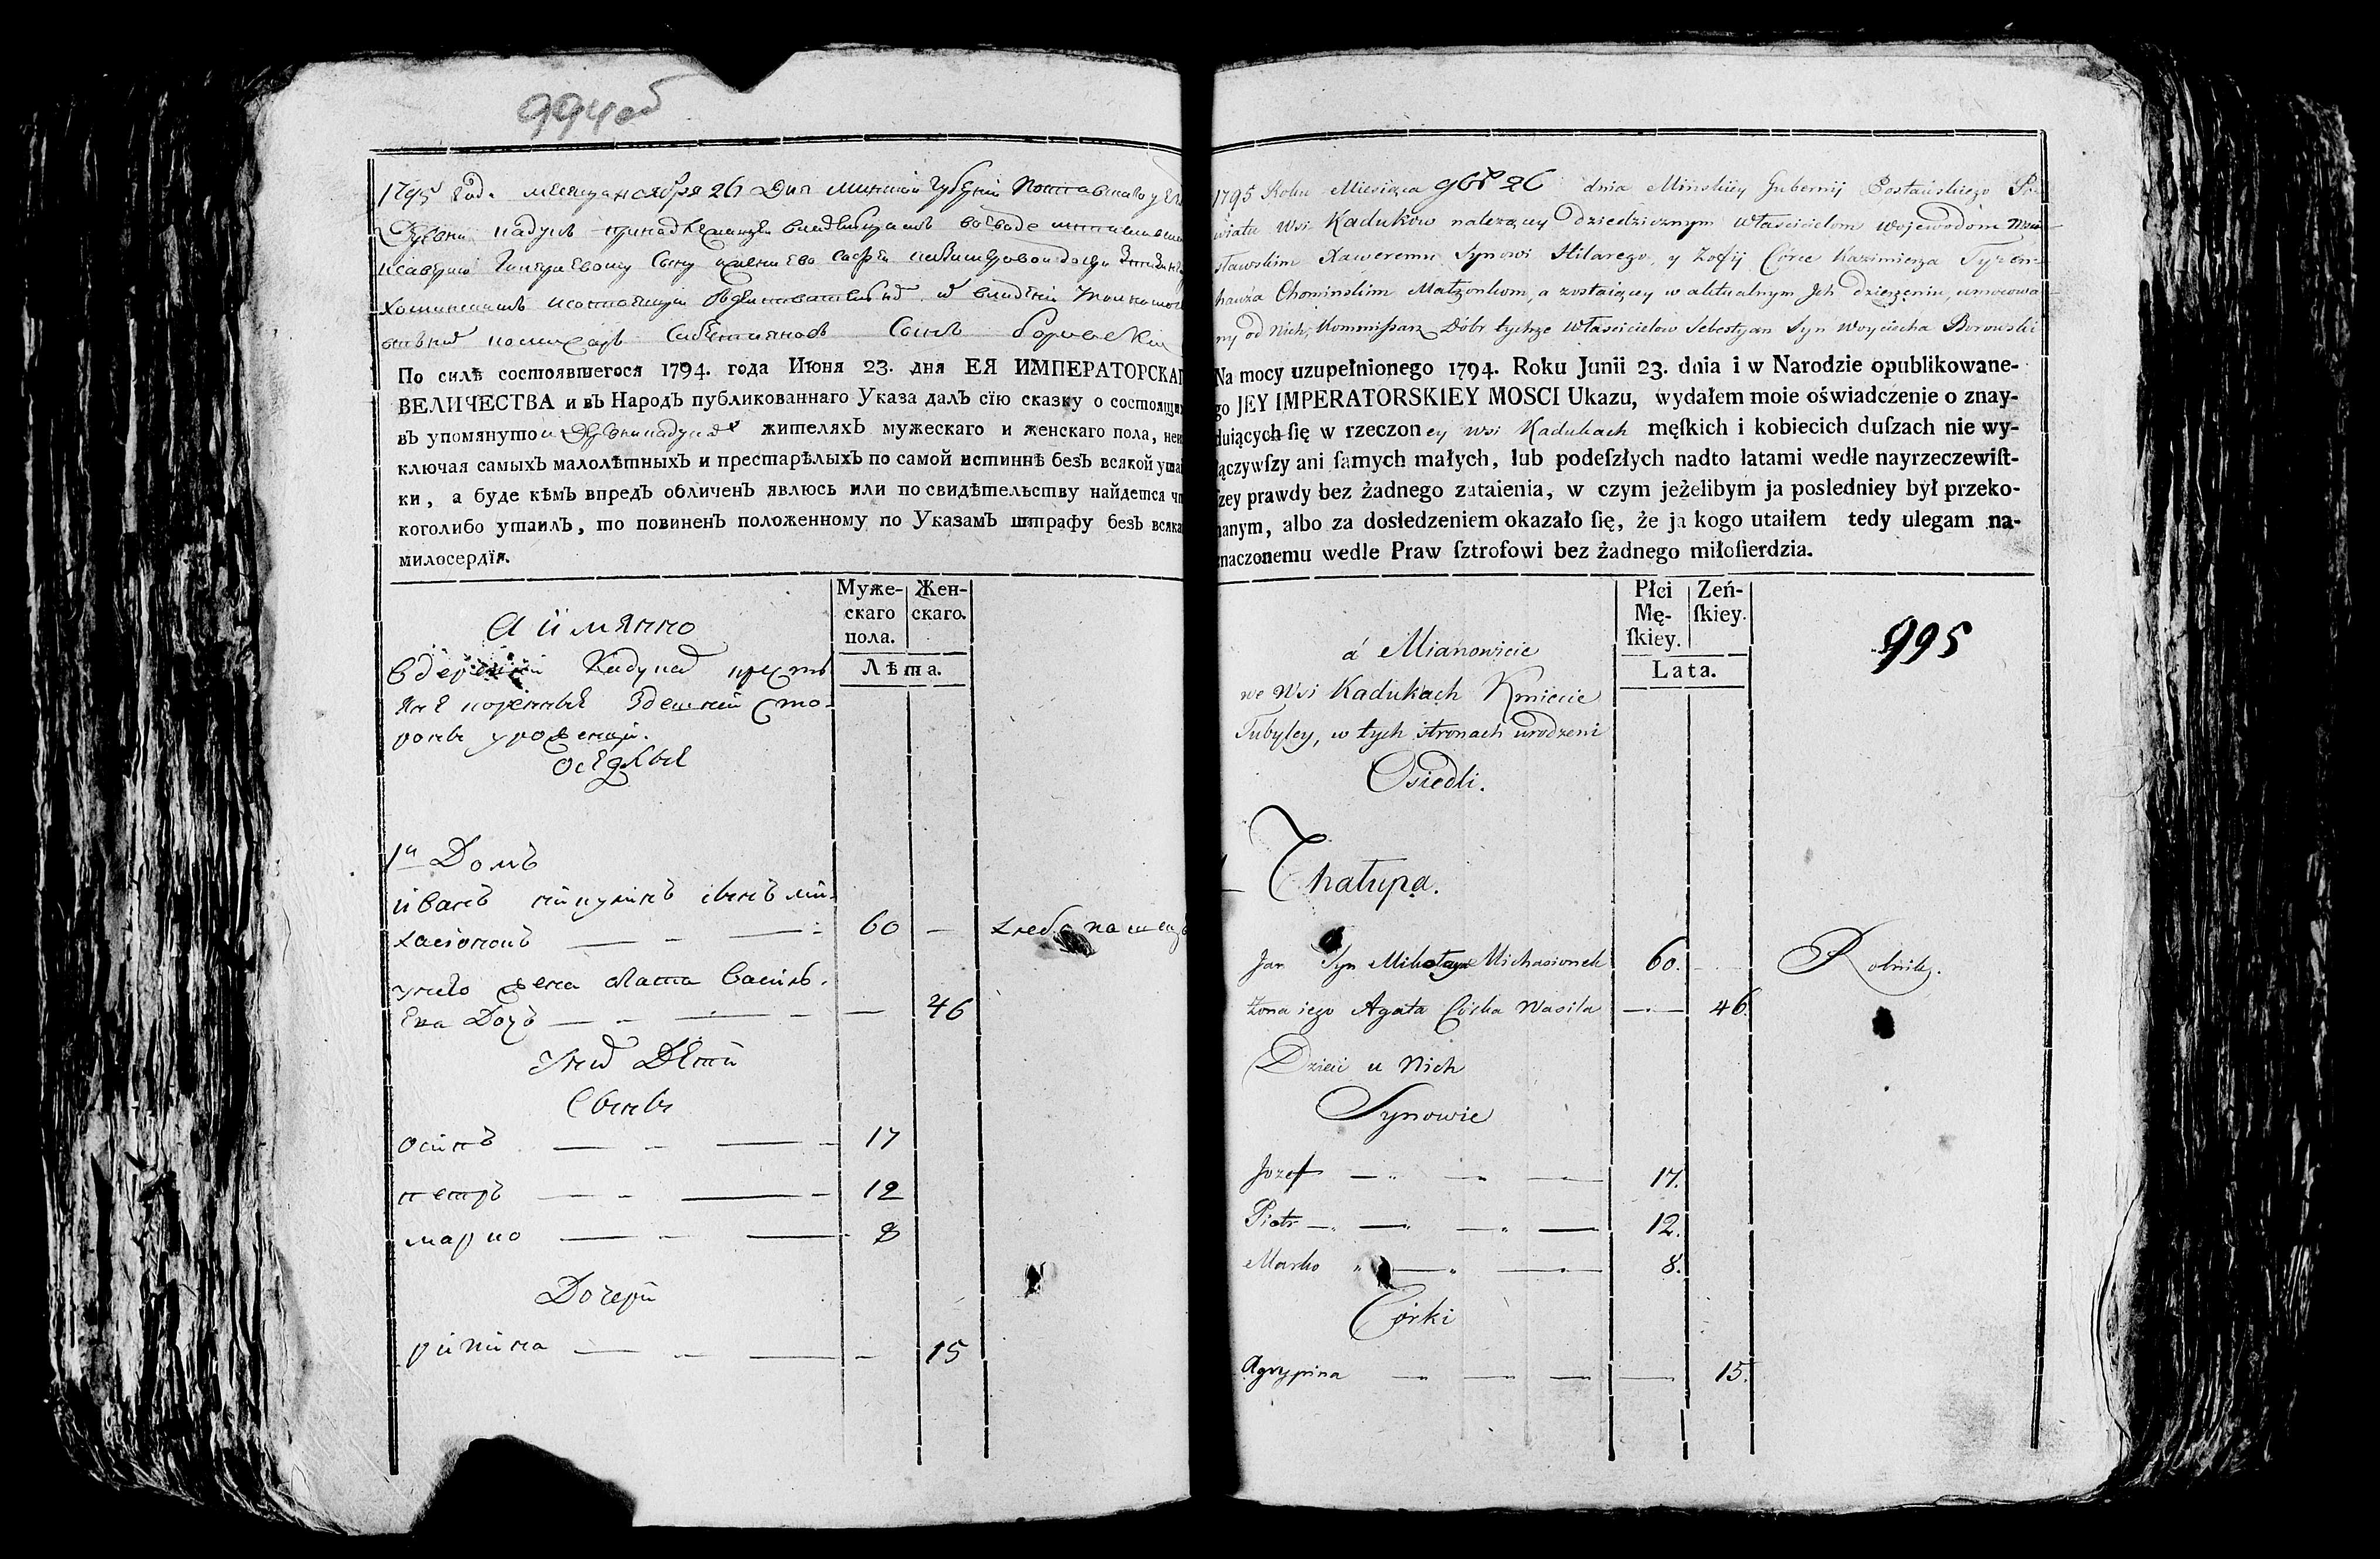 994об
1795 года месяца ноября 26 дня минской губернии Поставскаго
деревни кадукъ принадлежащей владельцамъ воеводе
Ксаверию сыну
Хоминскимъ
комисаръ сынъ Боровски
По силѣ состоявшегося 1794. года Июня 23. дня ЕЯ ИМПЕРАТОРСКАГ
ВЕЛИЧЕСТВА и въ Народъ публикованнаго Указа далъ сїю сказку о состоящи
въ упомянуто и деревни кадукахъ жителяхъ мужескаго и женскаго пола, неи
ключая самыхъ малолѣтныхъ и престарѣлыхъ по самой истиннѣ безъ всякой утаи
ки, а буде кѣмъ впредъ обличенъ явлюсь или по свидѣтельству найдется чт
коголибо утаилъ, то повиненъ положенному по Указамъ штрафу безъ всяка
милосердїя.
Муже- Жен-
скаго скаго.
пола.
Лѣта.
А имянно
в деревни Кадукахъ кресть
яне коренные здешней сто-
роны уроженцы.
оседлые
1й Домъ
иванъ никулинъ сынъ ми-
хасіонокъ 60 — хлебопашецъ
у него жена агата васил-
ева дочь — 46
У них Дети
Сыны
осипъ 17
петръ 12
марко 8
Дочери
рипина — 15
1795 Roku Miesiąca 9br 26 dnia Mińskiey Gubernij Postawskiego Po-
wiatu Wsi Kaduków należącey dziedzicznym Właścicielom Wojewodom Mści-
sławskim Xaweremu Synowi Hilarego, y Zofij Córce Kazimierza Tyzen-
hauza Chominskim Małżonkom, a zostaiącey w aktualnym Jch dzierżeniu, umocowa-
ny od Nich, Kommissarz Dóbr tychże Właścicielow Sebestyan Syn Woyciecha Borowski
Na mocy uzupełnionego 1794. Roku Junii 23. dnia i w Narodzie opublikowane-
go JEY IMPERATORSKIEY MOSCI Ukazu, wydałem moie oświadczenie o znay-
duiących ſię w rzeczoney wsi Kadukach męſkich i kobiecich duſzach nie wy-
łączywſzy ani ſamych małych, lub podeſzłych nadto latami wedle nayrzeczewiſt-
ſzey prawdy bez żadnego zataienia, w czym jeżelibym ja posledniey był przeko-
nanym, albo za dosledzeniem okazało ſię, że ja kogo utaiłem tedy ulegam na-
znaczonemu wedle Praw ſztrofowi bez żadnego miłoſierdzia.
Płci Zeń-
Mę- ſkiey.
ſkiey.
Lata.
995
á Mianowicie
we Wsi Kadukach Kmiecie
Tubylcy, w tych stronach urodzeni
Osiedli.
Chałupa.
Jan Syn Mikołaya Michasionek 60. — Rolnik.
Żona iego Agata Córka Wasila — 46.
Dzieci u Nich
Synowie
Jozef 17.
Piotr 12.
Marko 8.
Córki
Agrypina — 15.